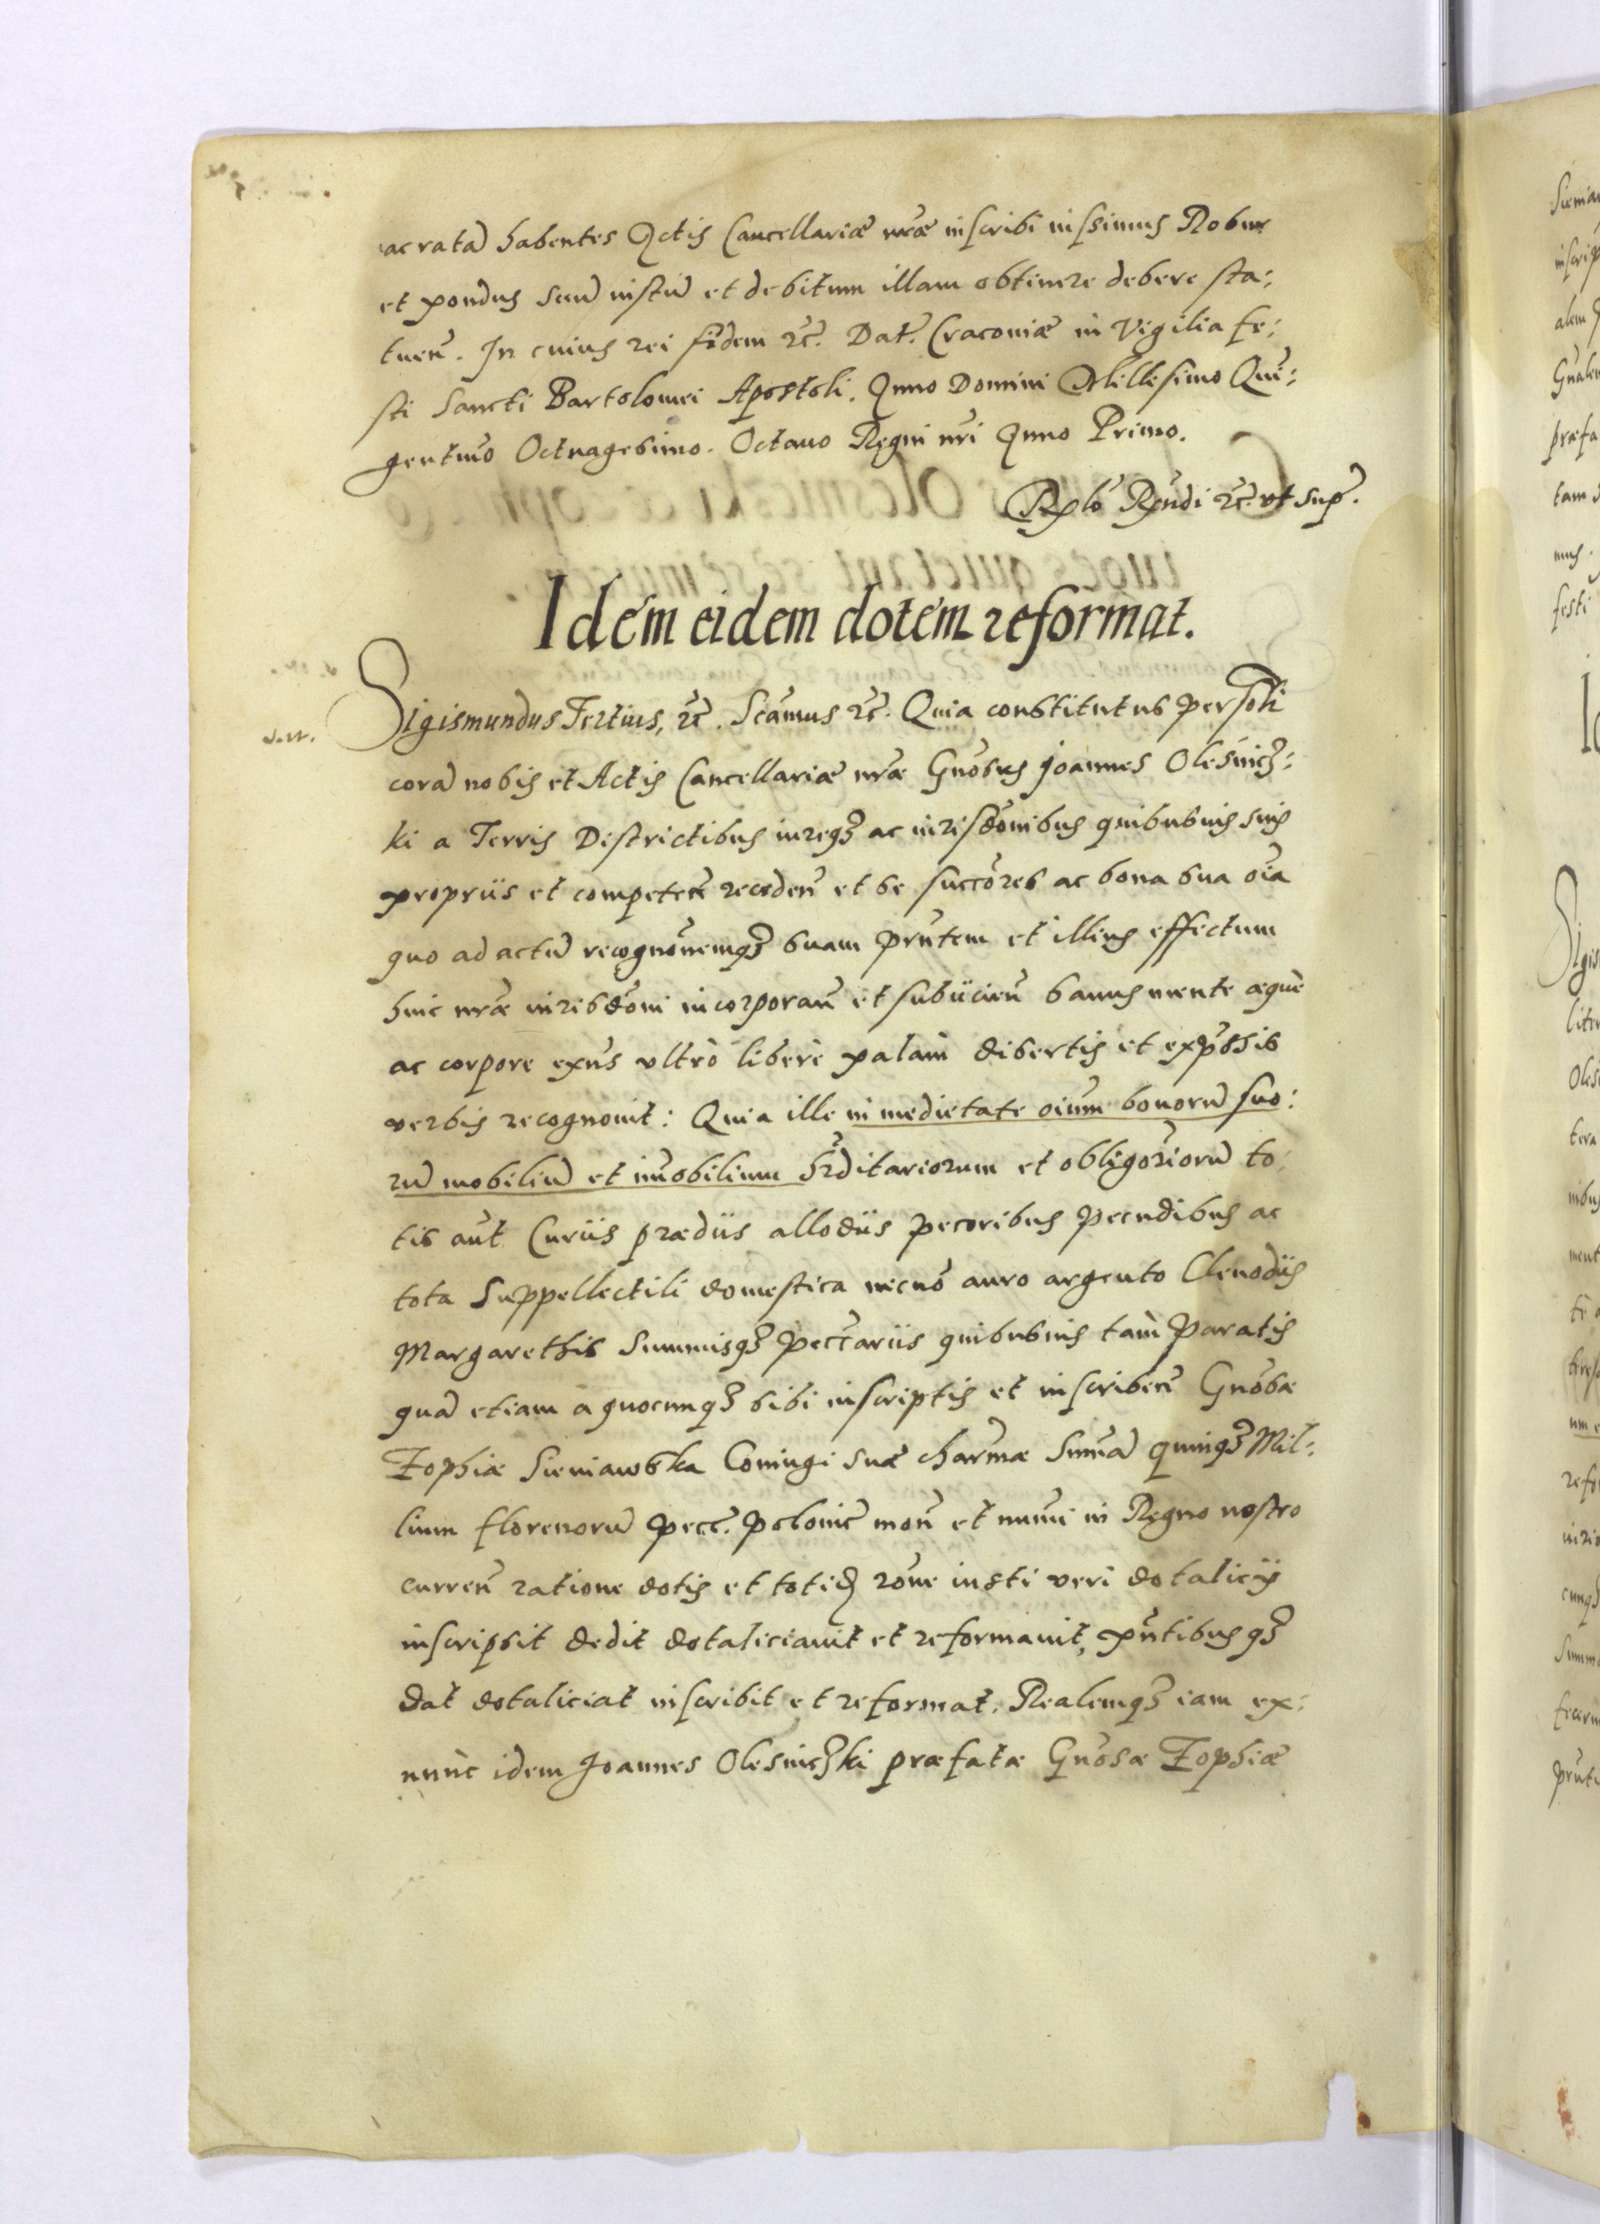 ac ratā habentes Actis Cancellariæ nrǣ inscribi iussimus Robur
et pondus suū iustū et debitum illam obtinere debere sta:
tuen̄. In cuius rei fidem ꝛc̄. Dat̄. Cracoviæ in Vigilia fe:
sti Sancti Bartolomei Apostoli. Anno Domini Millesimo Quī:
gentmō Octuagesimo. Octauo Regni nrī Anno Primo.
Rlō Rn̄di ꝛc̄. vt sup̄.
Idem eidem dotem reformat.
Sigismundus Tertius, ꝛc̄. Scāmus ꝛc̄. Quia constitutus persōli
corā nobis et Actis Cancellariæ nrǣ Gnōsus Joannes Olesnicz:
ki a Terris Districtibus iureqꝫ ac iurisdōnibus quibusuis suis
propriis et competen̄ receden̄ et se succōres ac bona sua oīa
quo ad actū recognōnemqꝫ suam prn̄tem et illius effectum
huic nrǣ iurisdōni incorporan̄ et subiicien̄ sanus mente æquè
ac corpore exn̄s vltrò liberè palàm disertis et exp̄ssis
verbis recognouit: Quia ille in medietate oiūm bonorū suo:
rū mobiliū et im̄obilium hrd̄itariorum et obligōriorū to:
tis aūt Curiis prædiis allodiis pecoribus pecudibus ac
tota Suppellectili domestica necnō auro argento Clenodiis
Margarethis Summisqꝫ pecc̄ariis quibusuis tàm paratis
quā etiam a quocunqꝫ sibi inscriptis et inscriben̄ Gnōsæ
Zophiæ Sieniawska Coniugi suæ charm̄æ Sum̄ā quinqꝫ Mil:
lium florenorū pecc̄. polonic̄ mon̄ et num̄i in Regno nostro
curren̄ ratione dotis et totidꝫ rōne iusti veri dotalicij
inscripsit dedit dotaliciauit et reformauit, pn̄tibusqꝫ
dat dotaliciat inscribit et reformat. Realemqꝫ iam ex:
nunc idem Joannes Olesniczki præfatæ Gnōsæ Zophiæ